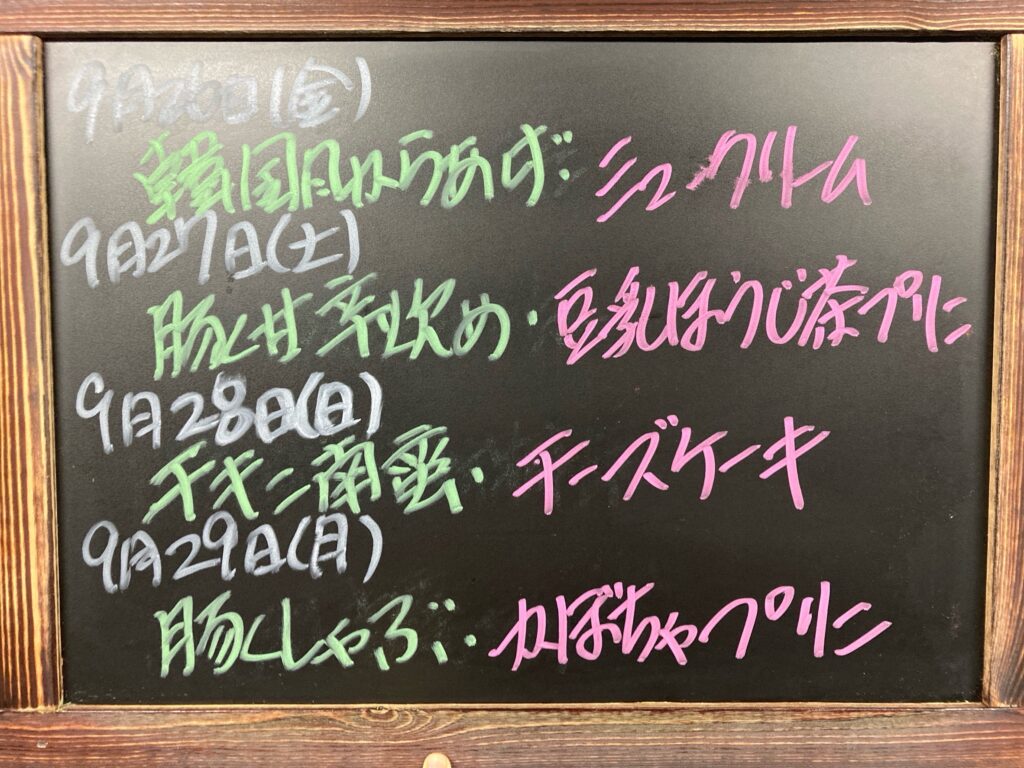 9月26日(金)
韓国風からあげ・シュークリーム
9月27日(土)
豚甘辛炊め・豆乳ほうじ茶プリン
9月28日(日)
チキン南蛮・チーズケーキ
9月29日(月)
豚しゃぶ・かぼちゃプリン